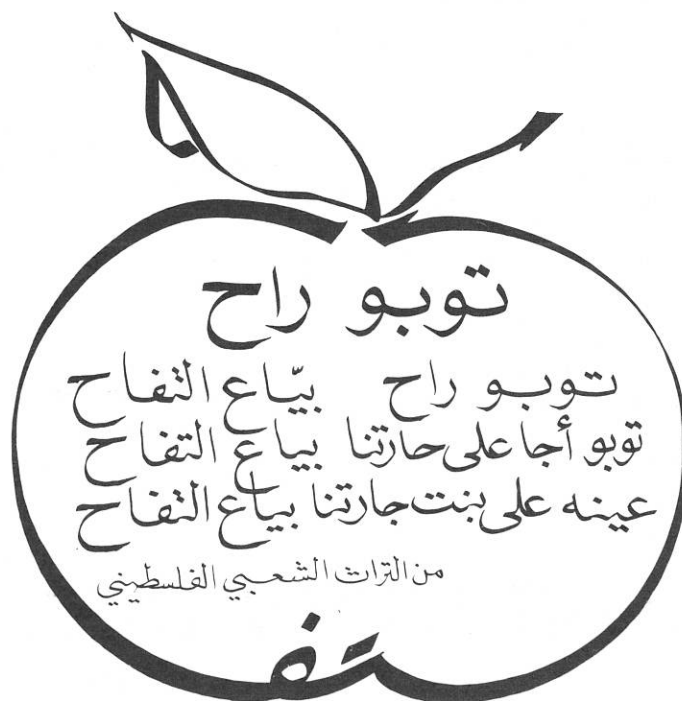 توبو راح
توبو راح بيّاع التفاح
توبو أجا على حارتنا بياع التفاح
عينه على بنت جارتنا بياع التفاح
من التراث الشعبي الفلسطيني